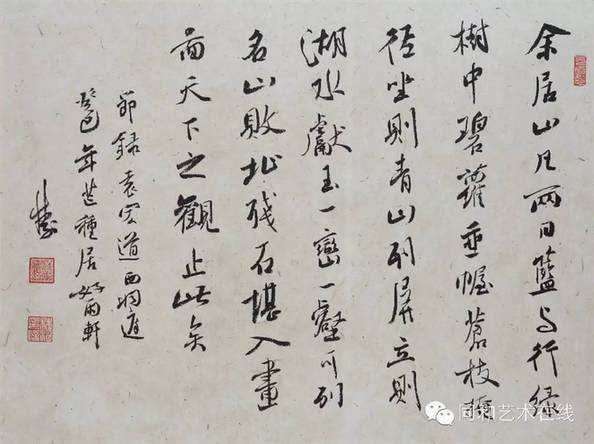 余居山凡兩日籃与行緑
樹中碧蘿垂幄蒼枝掩
徑坐則青山列屏立則
湖水獻玉一巒一壑可列
名山敗址殘石堪入畫
啚天下之觀止此矣
節録袁宏道西洞庭
癸巳年芒種居 雨軒
同和艺术在线